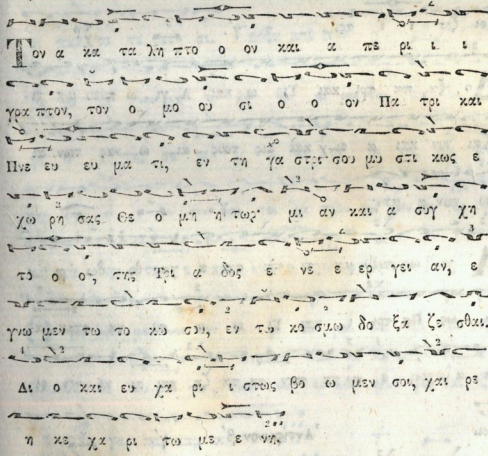 Τον α κα τα λη πτο ο ον και α πε ρι ι ι
γρα πτον, τον ο μο ου σι ο ο ον Πα τρι και
Πνε ευ ευ μα τι, εν τη γα στρι σου μυ στι κως ε
χω ρη σας Θε ο μη η τωρ· μι αν και α συγ χη
το ο ο, της Τρι α δος ε νε ε ερ γει αν, ε
γνω μεν τω το κω σου, εν τω κο σμω δο ξα ζε σθαι.
Δι ο και ευ χα ρι ι στως βο ω μεν σοι, χαι ρε
η κε χα ρι τω με ε νη.